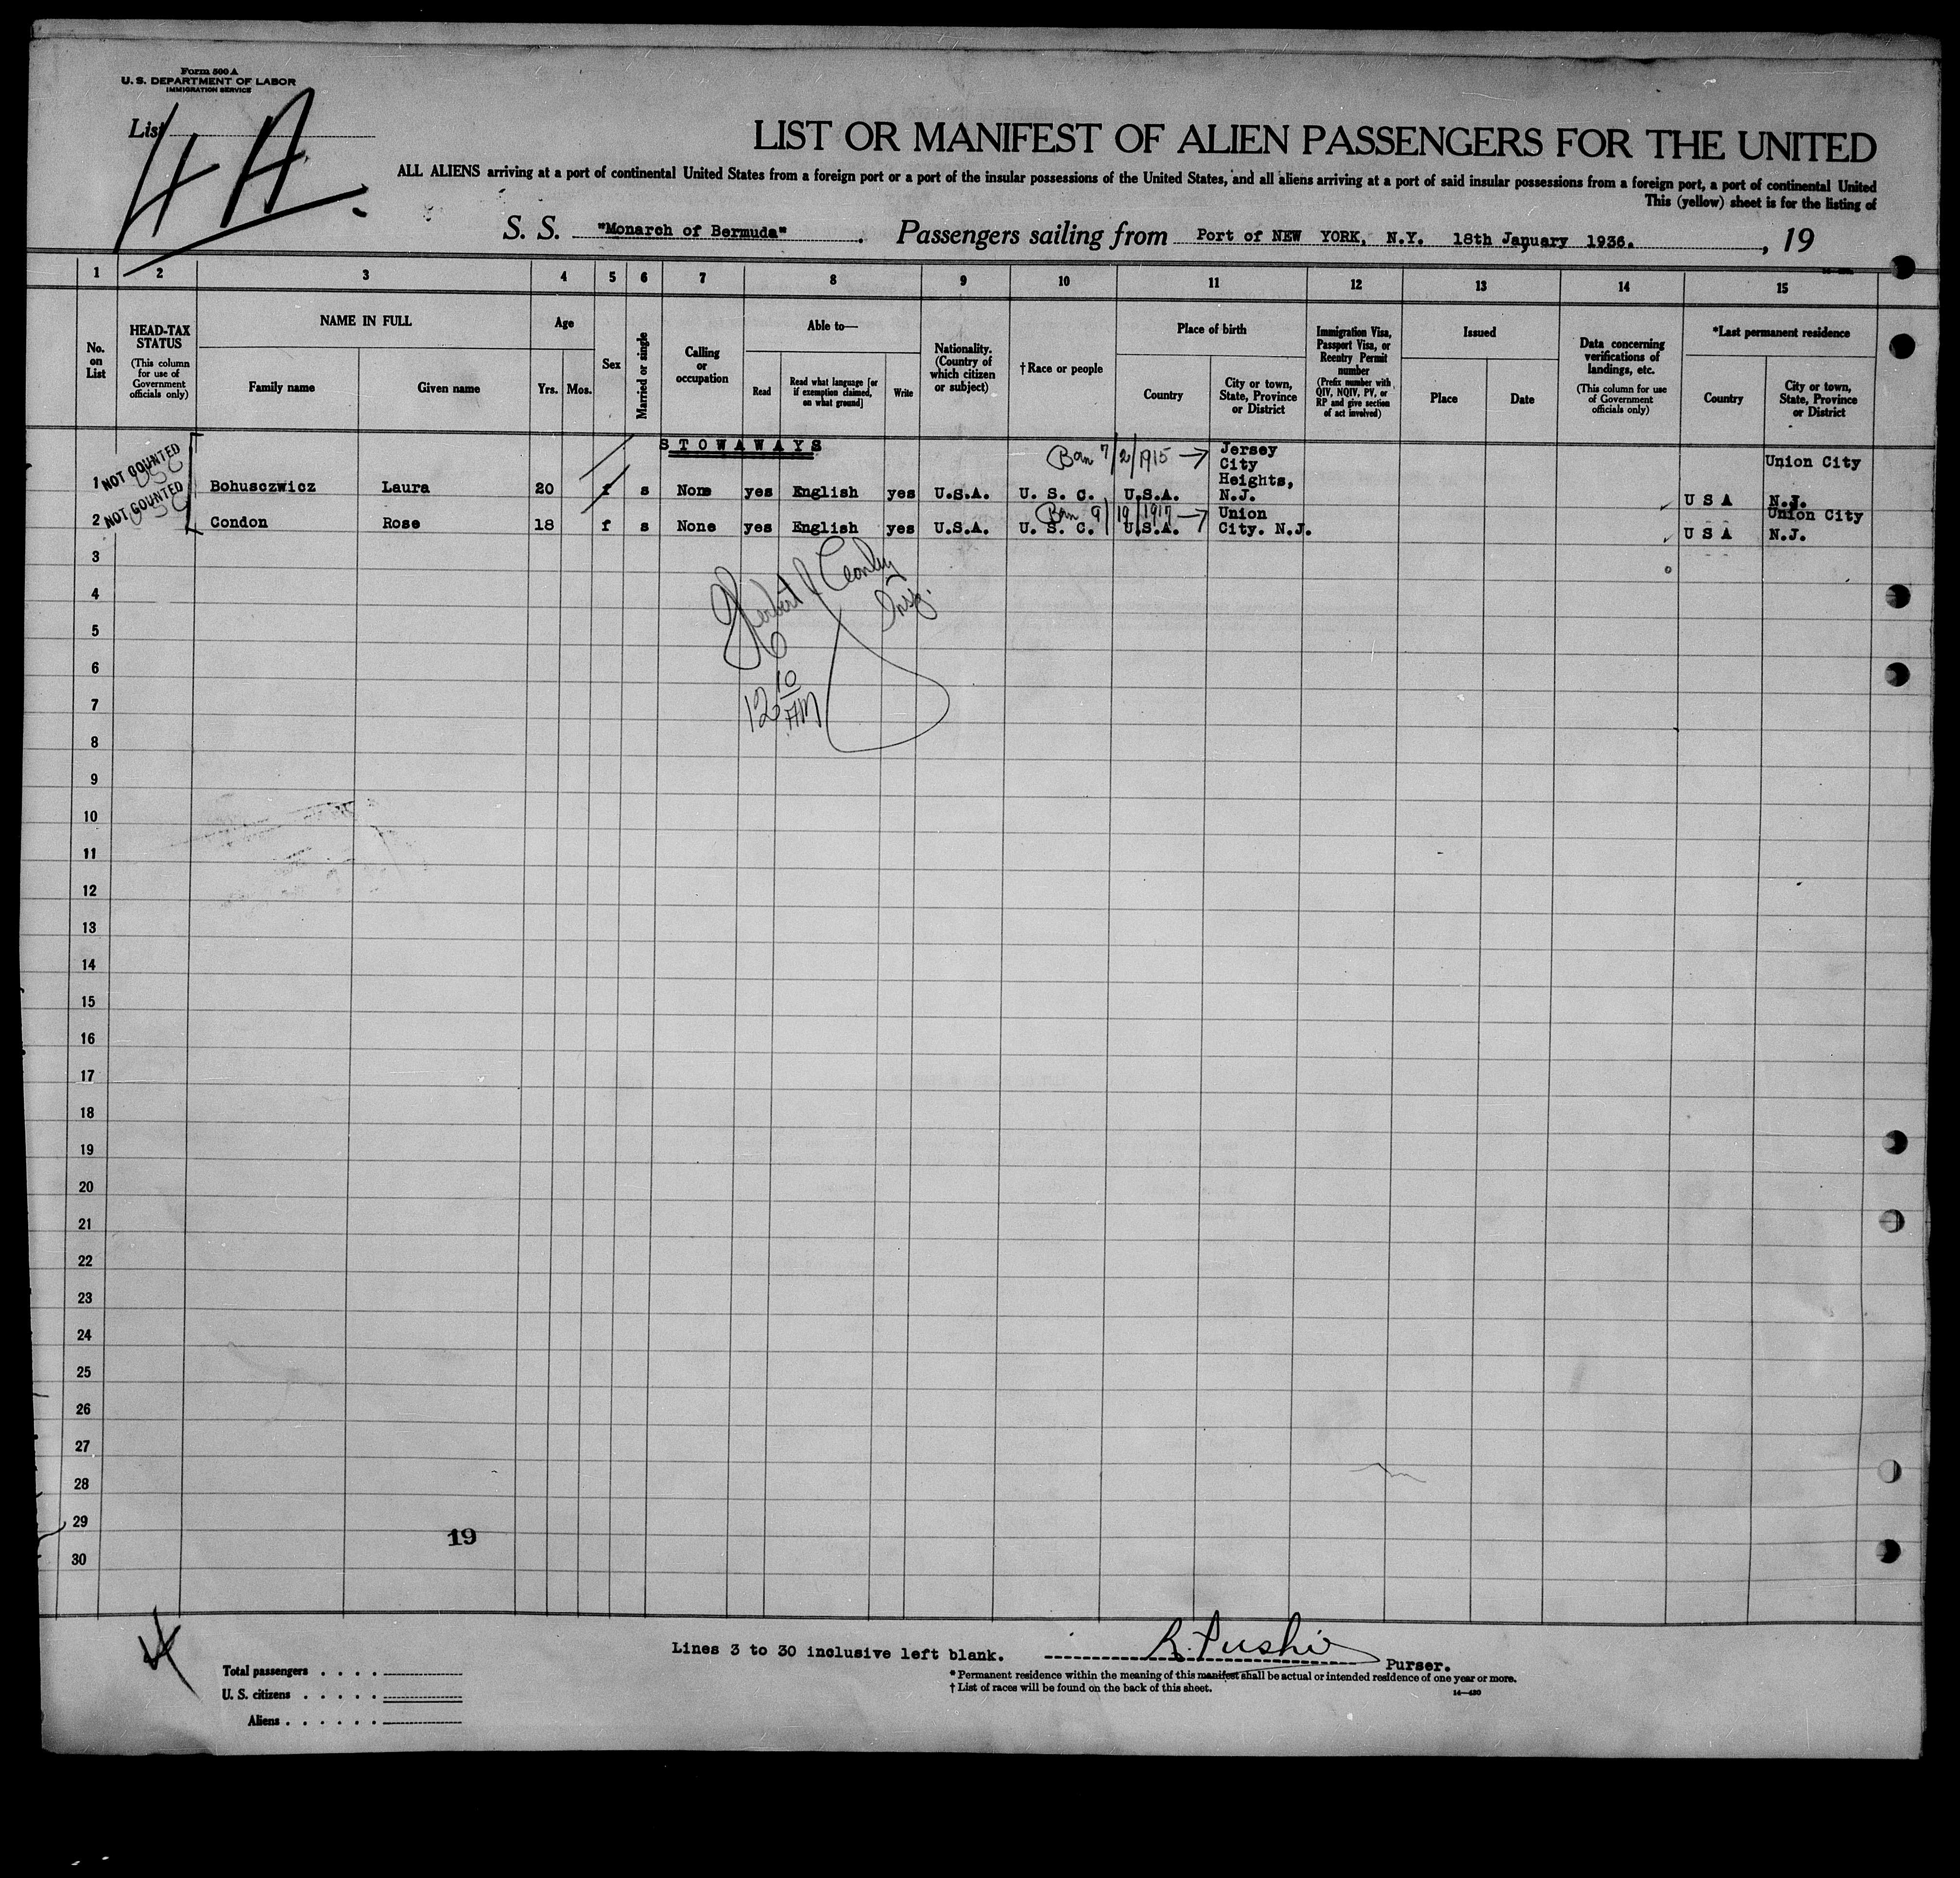 Form 500 A
U. S. DEPARTMENT OF LABOR
IMMIGRATION SERVICE
List
4A.
LIST OR MANIFEST OF ALIEN PASSENGERS FOR THE UNITED
ALL ALIENS arriving at a port of continental United States from a foreign port or a port of the insular possessions of the United States, and all aliens arriving at a port of said insular possessions from a foreign port, a port of continental United
This (yellow) sheet is for the listing of
S. S. "Monarch of Bermuda". Passengers sailing from Port of NEW YORK, N.Y. 18th January 1936. , 19
1 2 3 4 5 6 7 8 9 10 11 12 13 14 15
No. on List
HEAD-TAX STATUS
(This column for use of Government officials only)
NAME IN FULL
Family name
Given name
Age
Yrs.
Mos.
Sex
Married or single
Calling or occupation
Able to—
Read
Read what language [or if exemption claimed, on what ground]
Write
Nationality. (Country of which citizen or subject)
†Race or people
Place of birth
Country
City or town, State, Province or District
Immigration Visa, Passport Visa, or Reentry Permit number
(Prefix number with QIV, NQIV, PV, or RP and give section of act involved)
Issued
Place
Date
Data concerning verifications of landings, etc.
(This column for use of Government officials only)
*Last permanent residence
Country
City or town, State, Province or District
STOWAWAYS
1 NOT COUNTED USC Bohusczwicz Laura 20 f s None yes English yes U.S.A. U. S. C. Born 7/2/1915 → U.S.A. Jersey City Heights, N.J. U S A Union City N.J.
2 NOT COUNTED USC Condon Rose 18 f s None yes English yes U.S.A. U. S. C. Born 9/19/1917 → U.S.A. Union City. N.J. U S A Union City N.J.
3
4
5
6
7
8
9
10
11
12
13
14
15
16
17
18
19
20
21
22
23
24
25
26
27
28
29
30
Herbert
Insp.
12 10 AM
19
Lines 3 to 30 inclusive left blank.
Purser.
Total passengers . . . .
U. S. citizens . . . . .
Aliens . . . . . .
* Permanent residence within the meaning of this manifest shall be actual or intended residence of one year or more.
† List of races will be found on the back of this sheet.
14—430